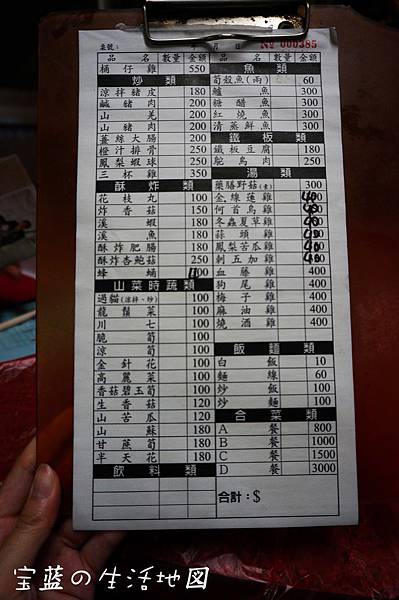 桌號： 年 月 日 № 000385
品名 數量 金額
桶仔雞 550
炒類
涼拌豬皮 180
鹹豬肉 200
山羌 200
山豬肉 200
薑絲大腸 200
橙汁排骨 250
鳳梨蝦球 250
三杯雞 350
酥炸類
花枝丸 100
炸香菇 150
溪蝦 180
溪魚 180
酥炸肥腸 180
酥炸杏鮑菇 250
蜂蛹
山菜時蔬類
過貓(涼拌、炒) 100
龍鬚菜 100
川七 100
脆筍 100
涼筍 100
金針花 100
高麗菜 100
香菇碧玉筍 100
生香菇 120
山苦瓜 120
山蘇 180
甘蔗筍 180
半天花 180
飲料類
品名 數量 金額
魚類
筍殼魚(兩) 60
鱸魚 300
糖醋魚 300
紅燒魚 300
清蒸鮮魚 300
鐵板類
鐵板豆腐 180
鴕鳥肉 250
湯類
藥膳野菇(素) 300
金線蓮雞
何首烏雞
冬蟲夏草雞
蒜頭雞
鳳梨苦瓜雞
刺五加雞
血藤雞 400
狗尾雞 400
梅子雞 400
麻油雞 400
燒酒雞 400
飯麵類
白飯 10
麵線 60
炒飯 100
炒麵 100
合菜類
A餐 800
B餐 1000
C餐 1500
D餐 3000
合計：$
宝蓝の生活地図